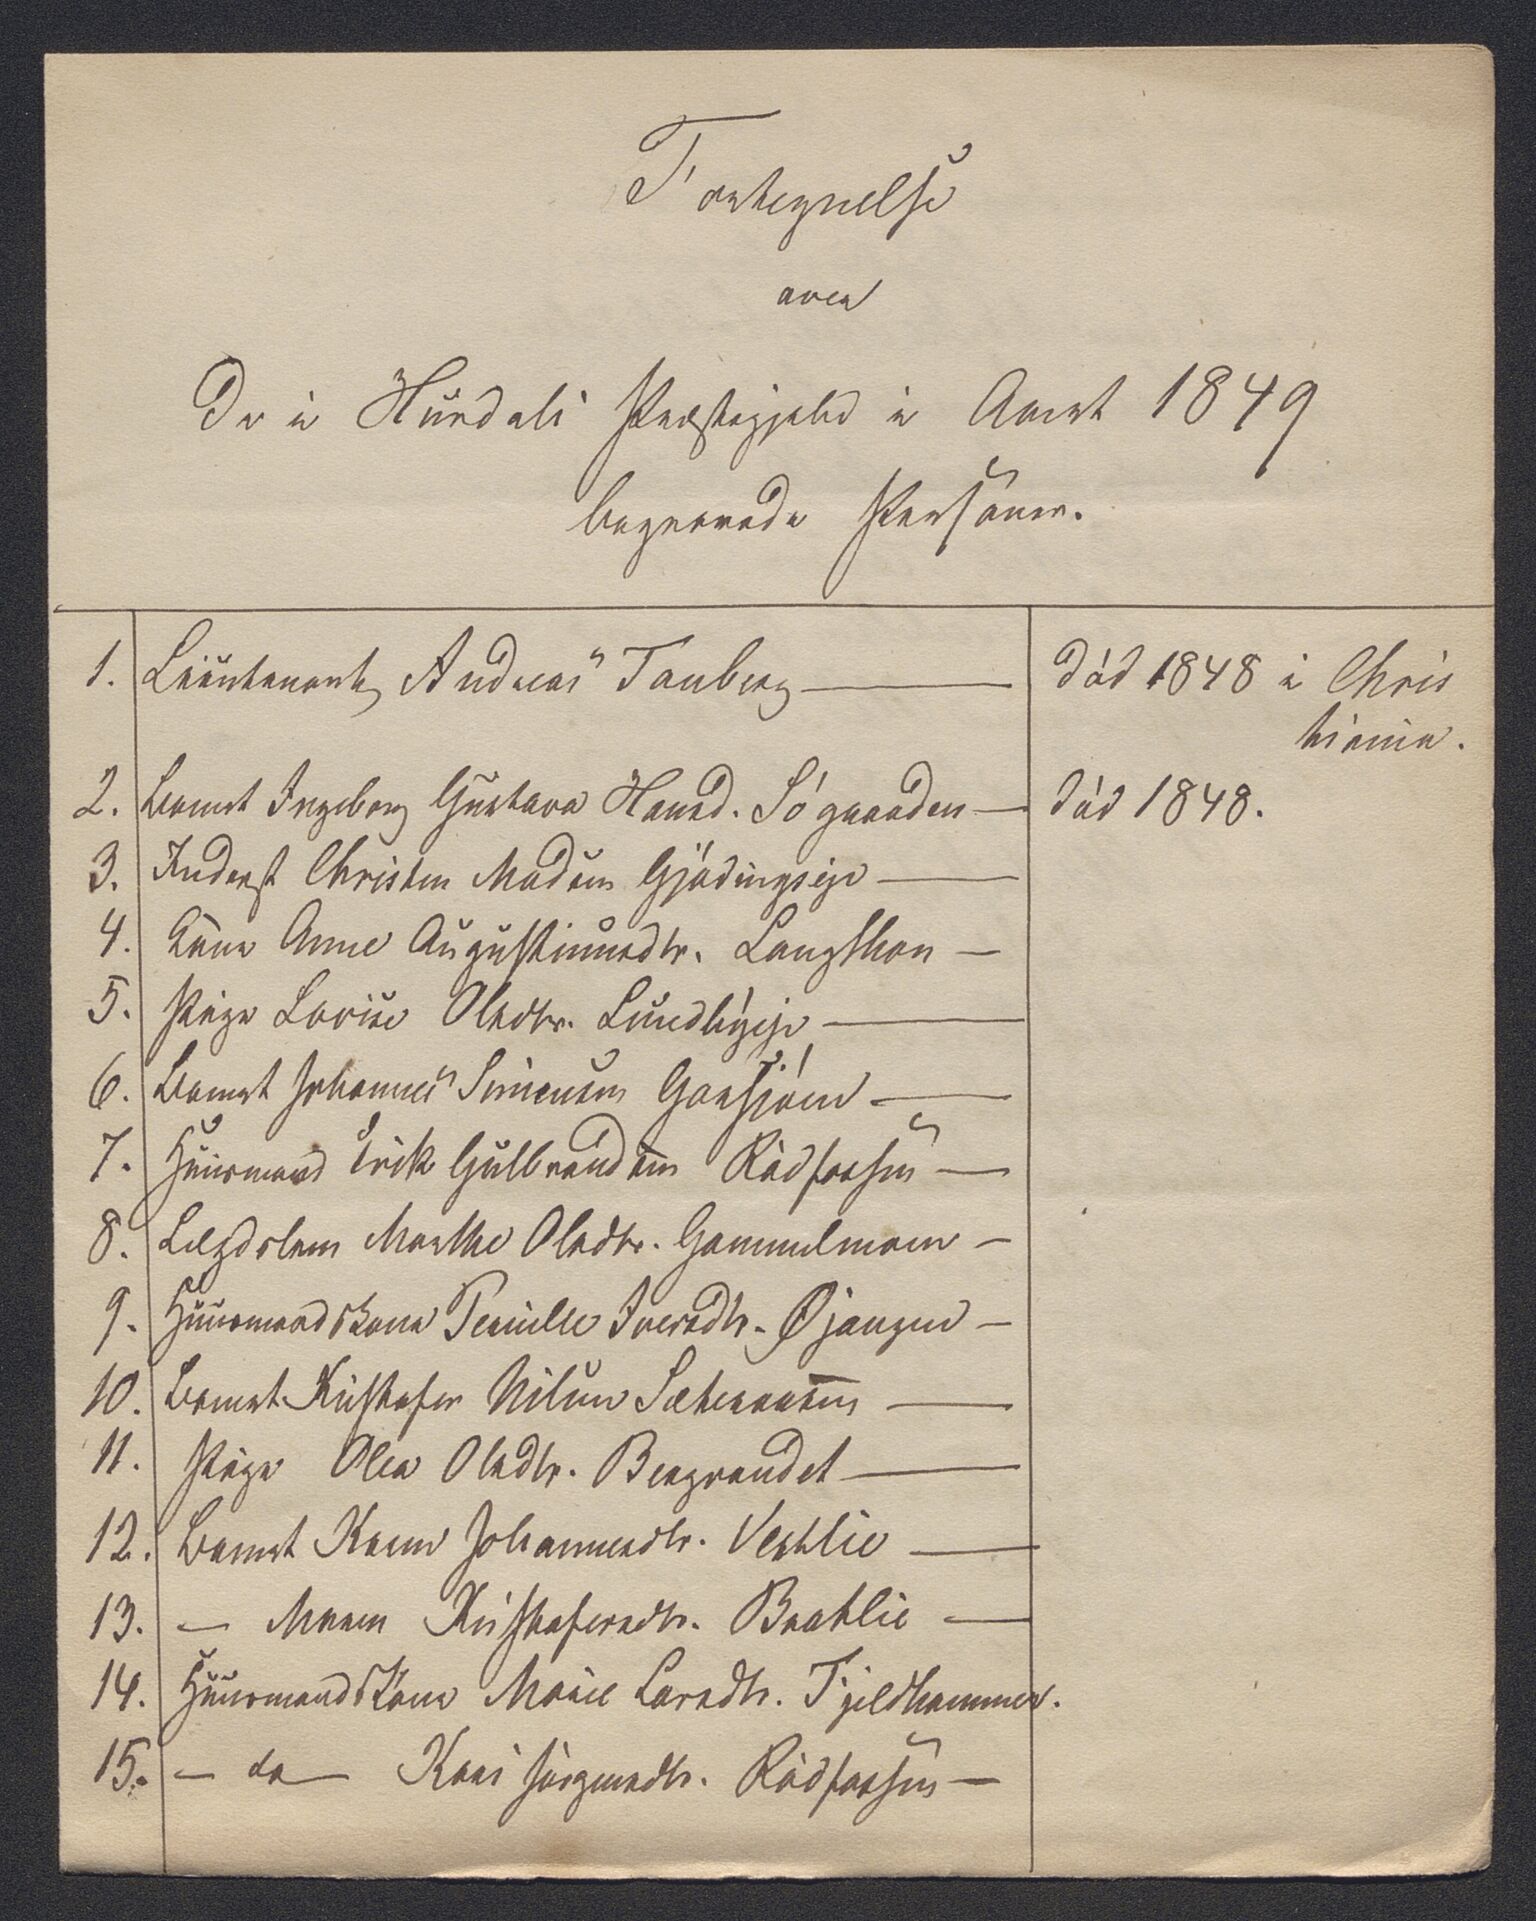 Fortegnelse
over
De i Hurdals Præstegjeld i Aaret 1849
begravede Personer.
1. Lieutenant Andreas Tauberg — Død 1848 i Chris
tiania.
2. Barnet Ingeborg Gustava Hansd. Søgaarden — død 1848.
3. Inderst Christen Madsen Gjødingseje —
4. Kone Anne Augustinusdtr. Langthon —
5. Pige Lovise Olsdtr. Lundbyeje —
6. Barnet Johannes Simensen Garsjøen —
7. Huusmand Erik Gulbrandsen Rødfossen —
8. Lægdslem Marthe Olsdtr. Gammelmoen —
9. Huusmandskone Pernille Iversdtr. Øjangen —
10. Barnet Kristofer Nilsen Sæteraasen —
11. Pige Olea Olsdtr. Bergrandet —
12. Barnet Karen Johannesdtr. Vestlie —
13. — Maren Kristofersdtr. Bratlie —
14. Huusmandskone Marie Larsdtr. Fjeldhammer.
15. — do — Kari Jørgensdtr. Rødfossen —